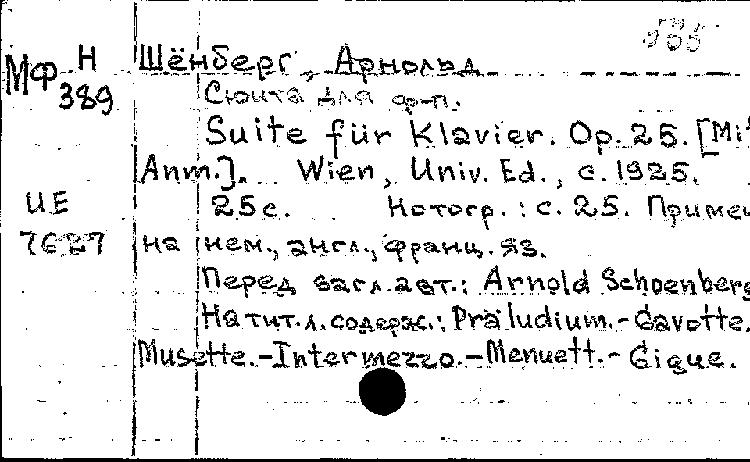 Н Шёнберг, Арнольд
МФ
389 Сюита для ф-п.
Suite für Klavier. Op. 25. [Mit
Anm.]. Wien, Univ. Ed., c. 1925.
UE 25 с. Нотогр.: с. 25. Примеч
7627 на нем., англ., франц. яз.
Перед загл. авт.: Arnold Schoenberg
На тит. л. содерж.: Präludium.-Gavotte.
Musette.-Intermezzo.-Menuett.-Gigue.